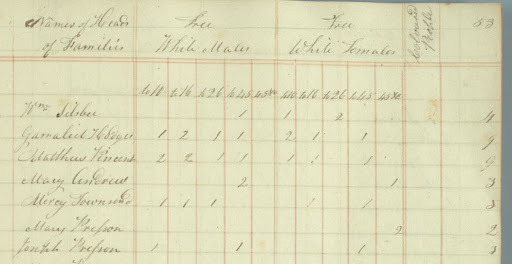 Names of Heads Free Free Coloured People 53
of Families White Males White Females
to 10 to 16 to 26 to 45 45 &c to 10 to 16 to 26 to 45 45 &c
Wm. 1 1 2 4
Gamaliel Hodges 1 2 1 1 2 1 1 9
Matthew Vincent 2 2 1 1 1 1 1 9
Mary Andrews 2 1 3
Mercy Townsend 1 1 1 1 1 5
Mary Presson 2 2
Joseph Presson 1 1 1 3